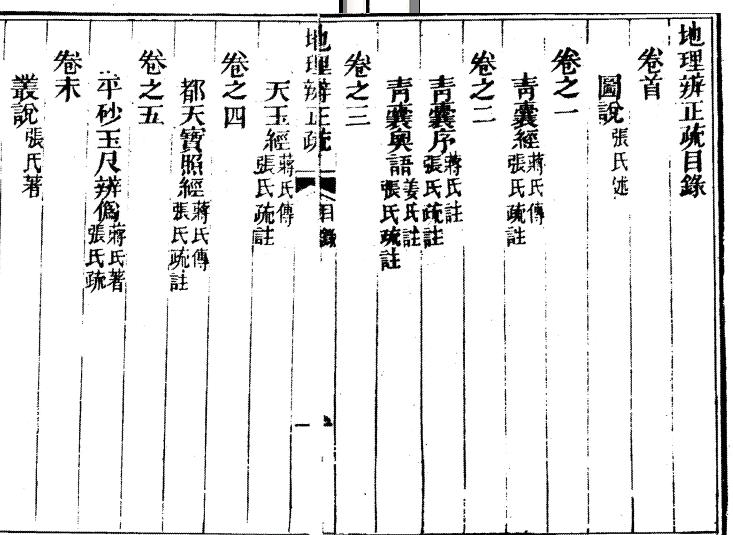 地理辨正疏目錄
卷首
圖說 張氏述
卷之一
青囊經 蔣氏傳 張氏疏註
卷之二
青囊序 蔣氏註 張氏疏註
青囊奧語 姜氏註 張氏疏註
卷之三
地理辨正疏 目錄 一
天玉經 蔣氏傳 張氏疏註
卷之四
都天寶照經 蔣氏傳 張氏疏註
卷之五
平砂玉尺辨僞 蔣氏著 張氏疏
卷末
叢說 張氏著